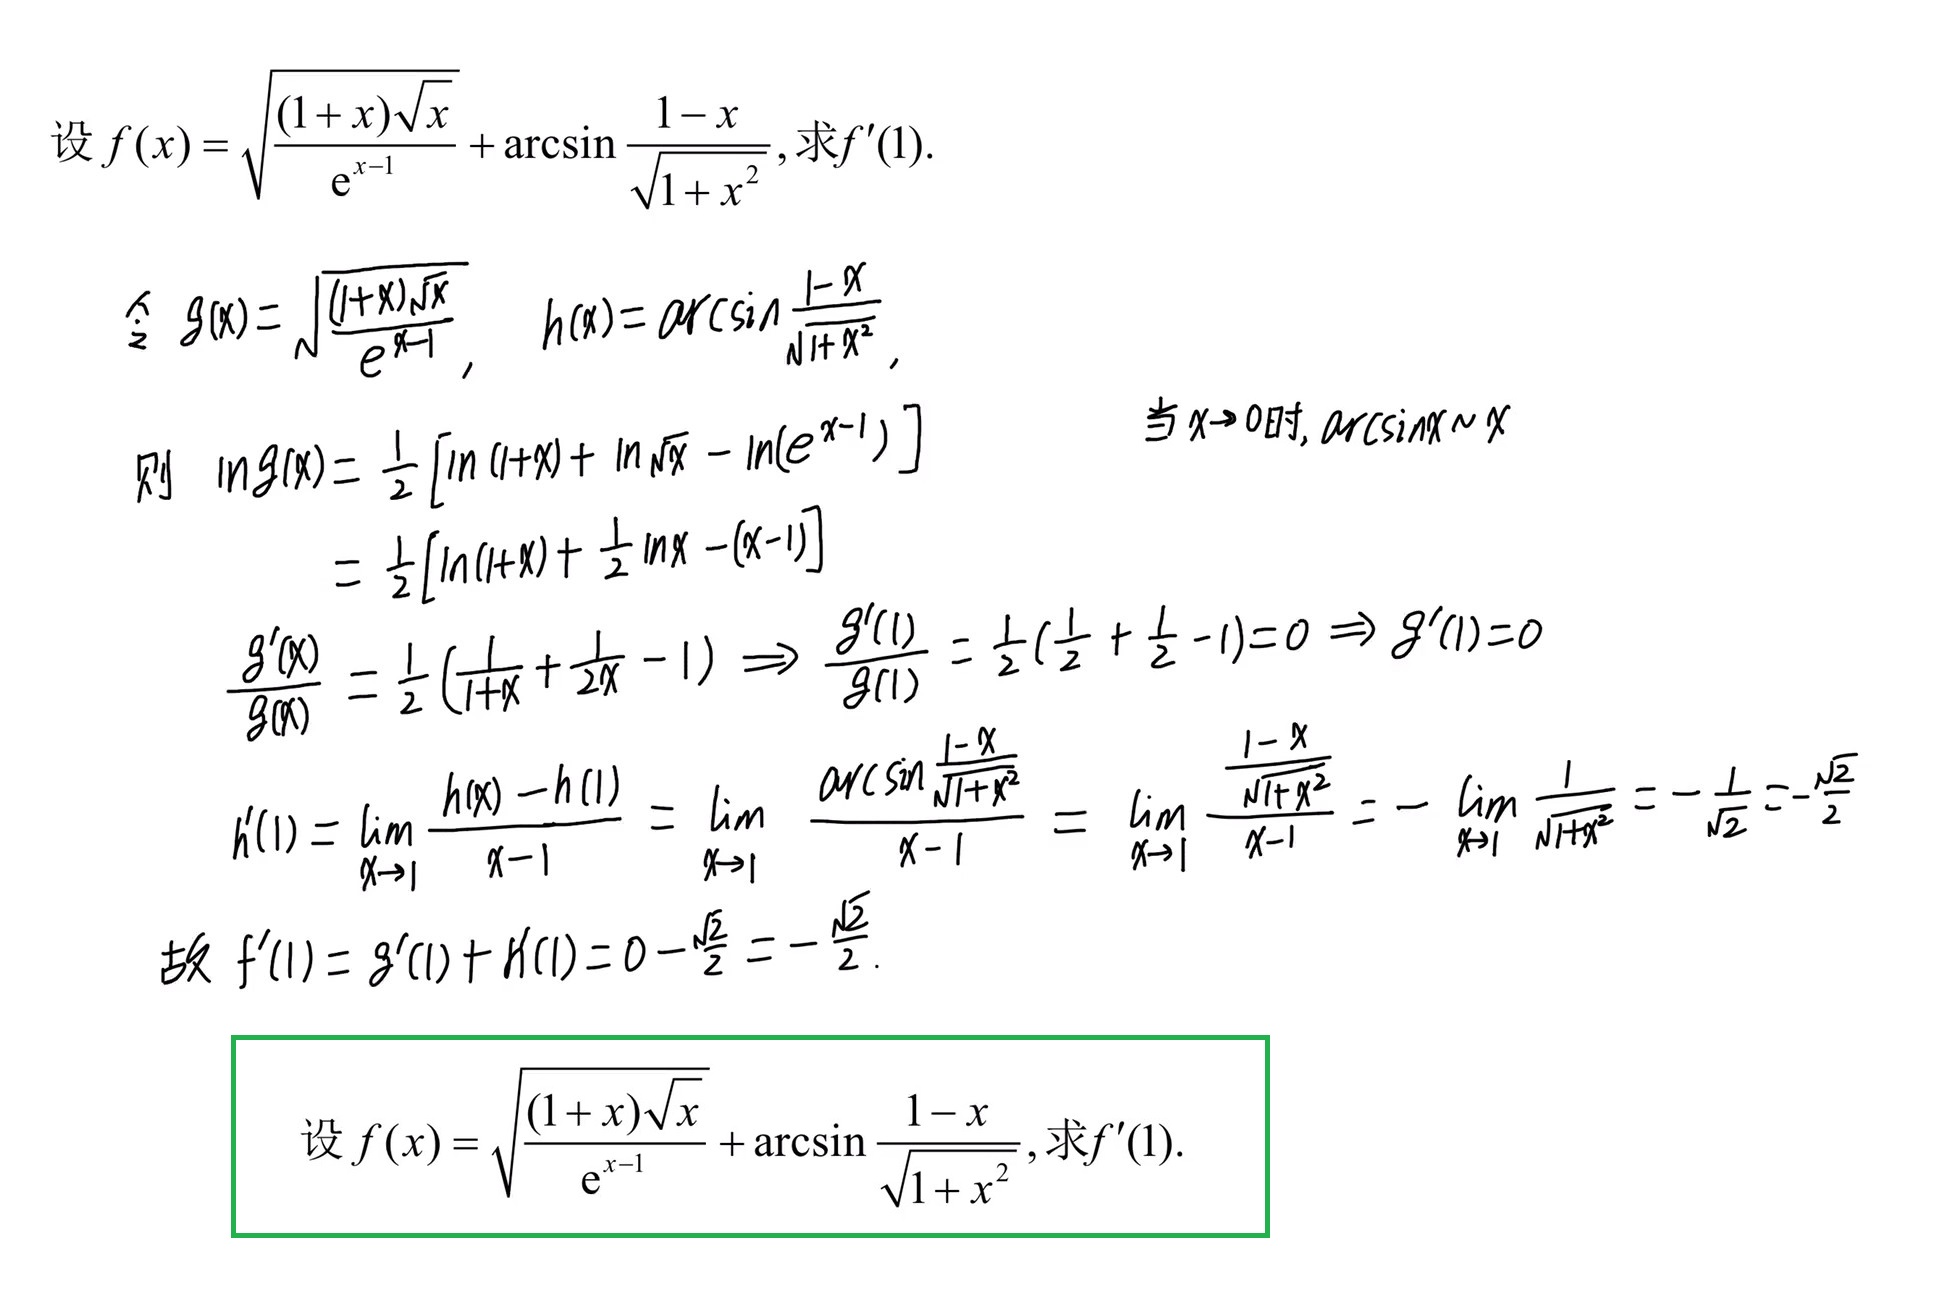 设 $f(x)=\sqrt{\frac{(1+x)\sqrt{x}}{\mathrm{e}^{x-1}}}+\arcsin\frac{1-x}{\sqrt{1+x^2}}$, 求$f'(1)$.
令 $g(x)=\sqrt{\frac{(1+x)\sqrt{x}}{e^{x-1}}}$, $h(x)=\arcsin\frac{1-x}{\sqrt{1+x^2}}$,
当 $x\to 0$时, $\arcsin x\sim x$
则 $\ln g(x)=\frac{1}{2}\left[\ln(1+x)+\ln\sqrt{x}-\ln(e^{x-1})\right]$
$=\frac{1}{2}\left[\ln(1+x)+\frac{1}{2}\ln x-(x-1)\right]$
$\frac{g'(x)}{g(x)}=\frac{1}{2}\left(\frac{1}{1+x}+\frac{1}{2x}-1\right)\Rightarrow\frac{g'(1)}{g(1)}=\frac{1}{2}\left(\frac{1}{2}+\frac{1}{2}-1\right)=0\Rightarrow g'(1)=0$
$h'(1)=\lim_{x\to 1}\frac{h(x)-h(1)}{x-1}=\lim_{x\to 1}\frac{\arcsin\frac{1-x}{\sqrt{1+x^2}}}{x-1}=\lim_{x\to 1}\frac{\frac{1-x}{\sqrt{1+x^2}}}{x-1}=-\lim_{x\to 1}\frac{1}{\sqrt{1+x^2}}=-\frac{1}{\sqrt{2}}=-\frac{\sqrt{2}}{2}$
故 $f'(1)=g'(1)+h'(1)=0-\frac{\sqrt{2}}{2}=-\frac{\sqrt{2}}{2}$.
设 $f(x)=\sqrt{\frac{(1+x)\sqrt{x}}{\mathrm{e}^{x-1}}}+\arcsin\frac{1-x}{\sqrt{1+x^2}}$, 求$f'(1)$.